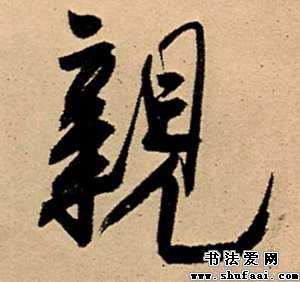 親
书法爱网
www.shufaai.com